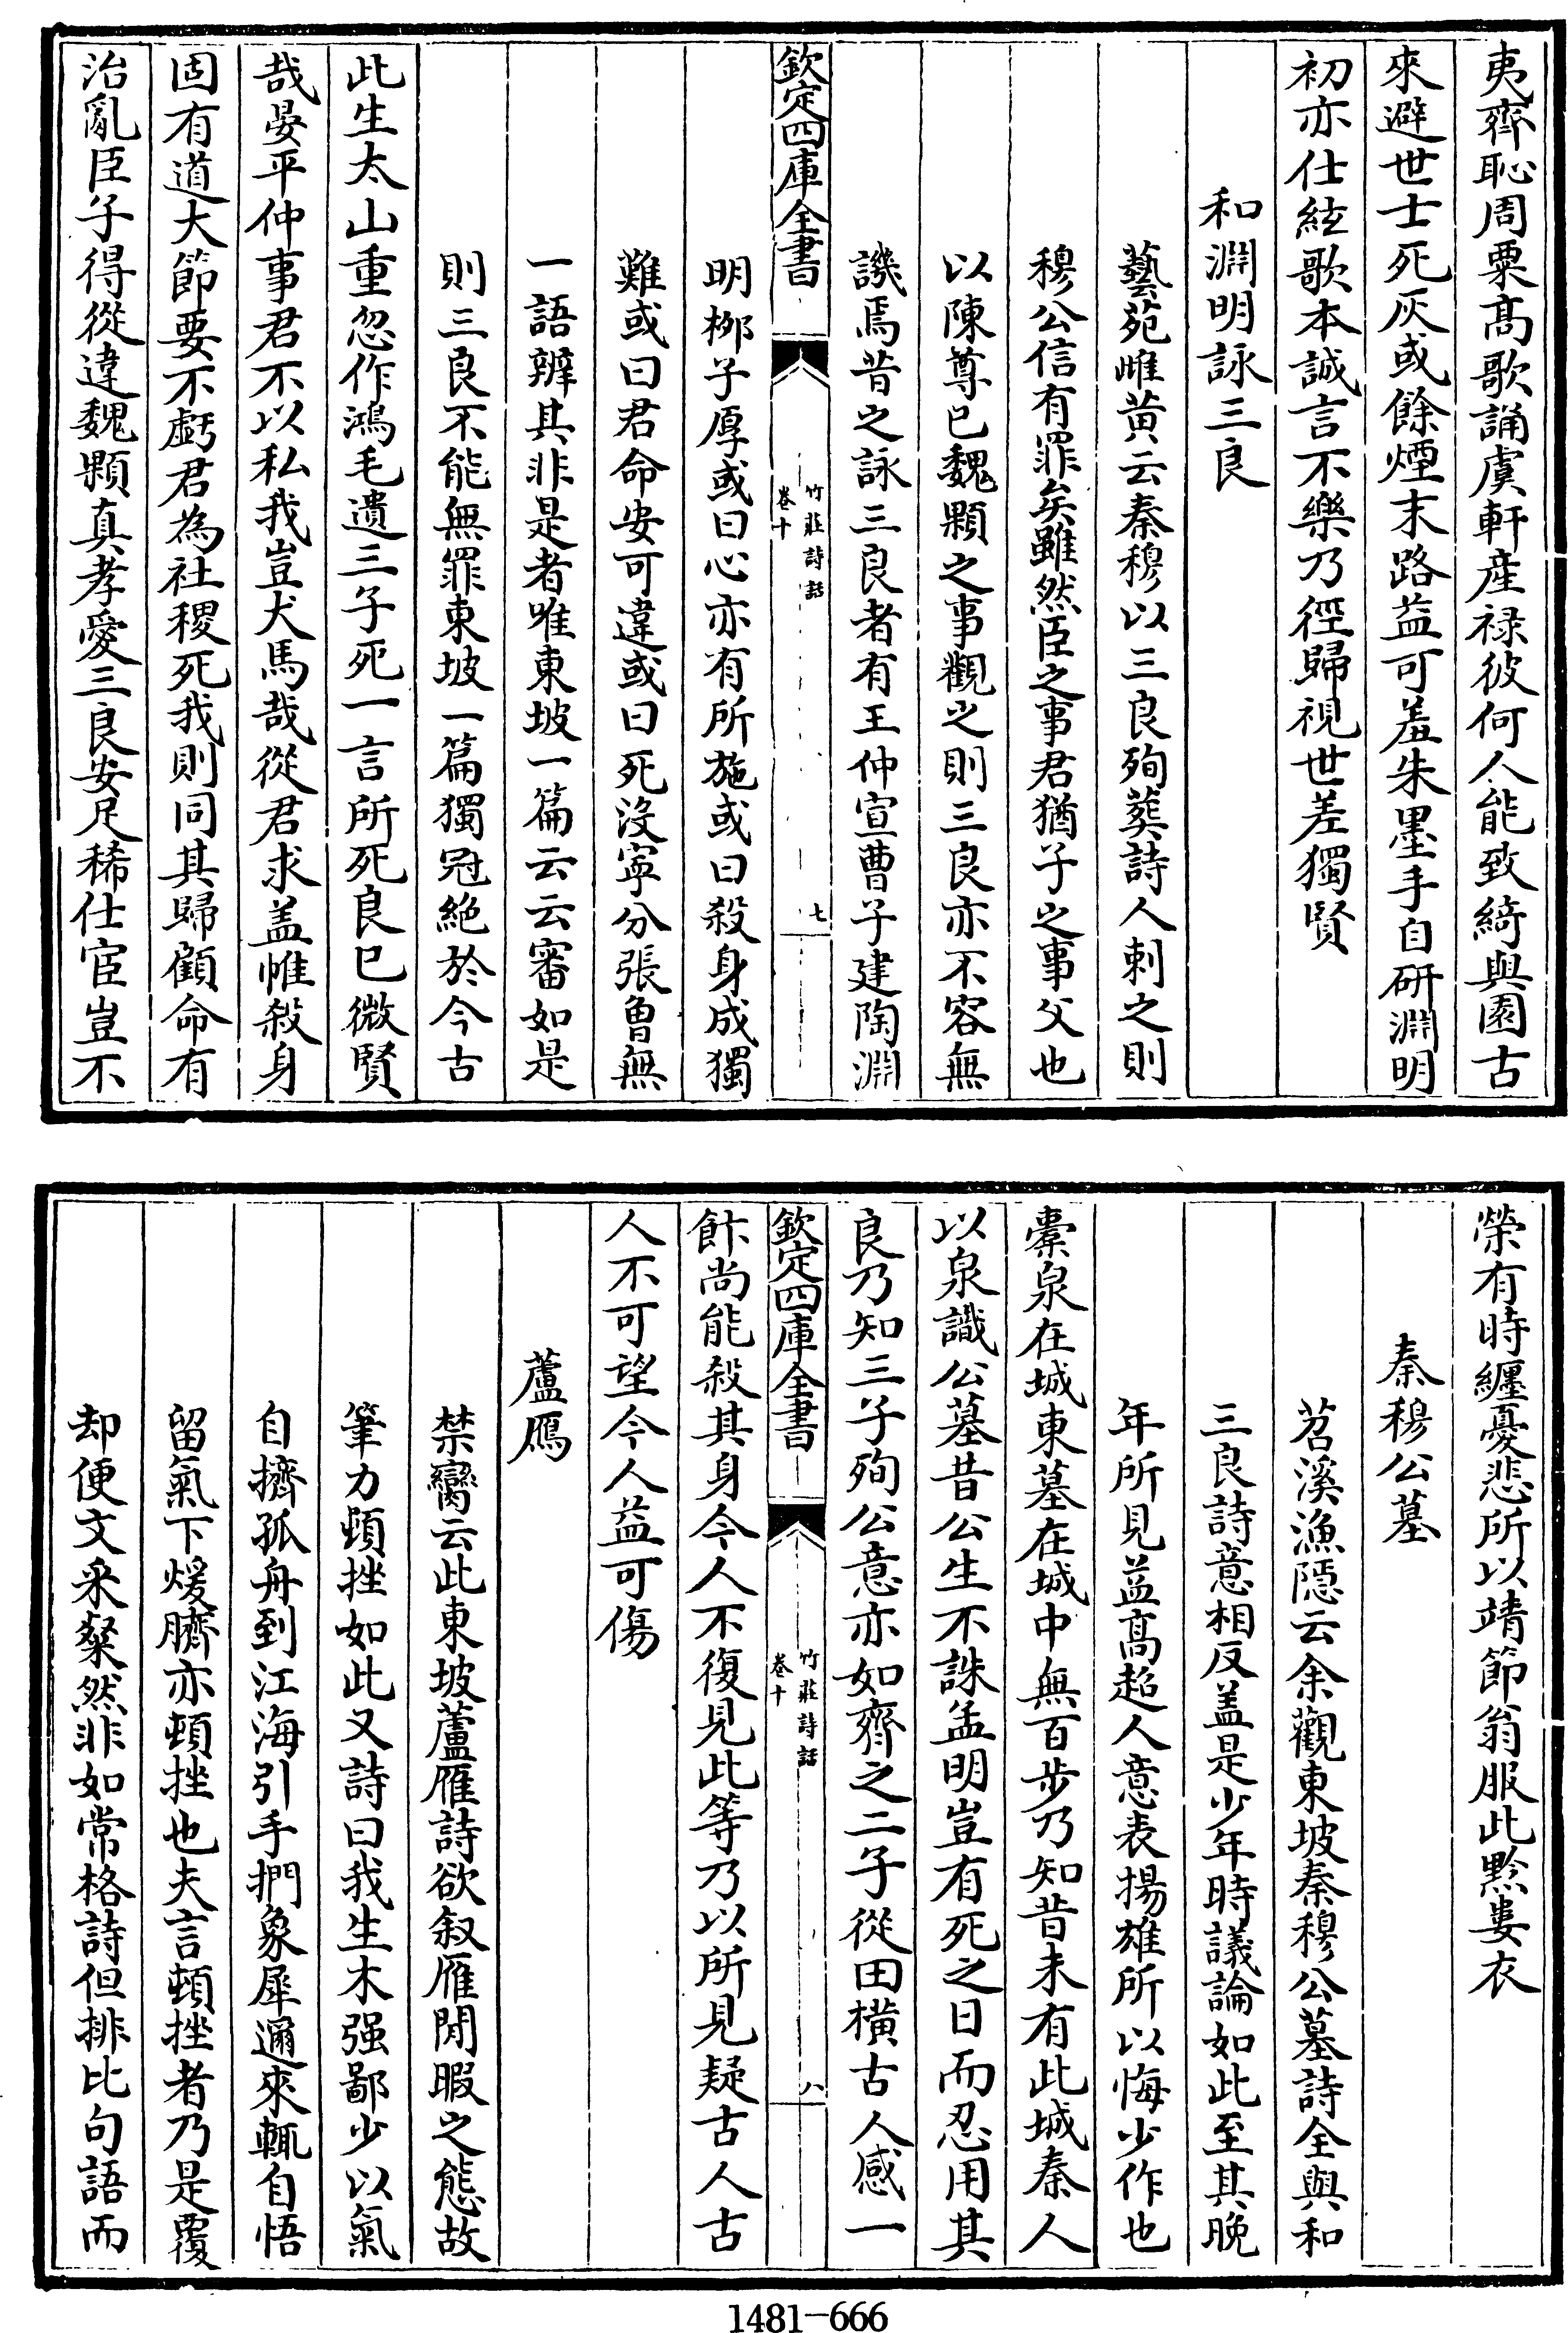 夷齊恥周粟髙歌誦虞軒産禄彼何人能致綺與園古
來避世士死灰或餘煙末路益可羞朱墨手自研淵明
初亦仕絃歌本誠言不樂乃徑歸視世差獨賢
和淵明詠三良
藝苑雌黄云秦穆以三良殉葬詩人刺之則
穆公信有罪矣雖然臣之事君猶子之事父也
以陳尊已魏顆之事觀之則三良亦不容無
譏焉昔之詠三良者有王仲宣曹子建陶淵
欽定四庫全書
竹莊詩話
卷十
七
明栁子厚或曰心亦有所施或曰殺身成獨
難或曰君命安可違或曰死沒寜分張曾無
一語辨其非是者唯東坡一篇云云審如是
則三良不能無罪東坡一篇獨冠絶於今古
此生太山重忽作鴻毛遺三子死一言所死良已微賢
哉晏平仲事君不以私我豈犬馬哉從君求盖帷殺身
固有道大節要不虧君為社稷死我則同其歸顧命有
治亂臣子得從違魏顆真孝愛三良安足稀仕宦豈不
榮有時纒憂悲所以靖節翁服此黔婁衣
秦穆公墓
苕溪漁隱云余觀東坡秦穆公墓詩全與和
三良詩意相反盖是少年時議論如此至其晚
年所見益髙超人意表揚雄所以悔少作也
橐泉在城東墓在城中無百步乃知昔未有此城秦人
以泉識公墓昔公生不誅孟明豈有死之日而忍用其
良乃知三子殉公意亦如齊之二子從田橫古人感一
欽定四庫全書
竹莊詩話
卷十
八
飰尚能殺其身今人不復見此等乃以所見疑古人古
人不可望今人益可傷
蘆鴈
禁臠云此東坡蘆雁詩欲叙雁閒暇之態故
筆力頓挫如此又詩曰我生木强鄙少以氣
自擠孤舟到江海引手捫象犀邇來輒自悟
留氣下煖臍亦頓挫也夫言頓挫者乃是覆
却便文采粲然非如常格詩但排比句語而
1481-666